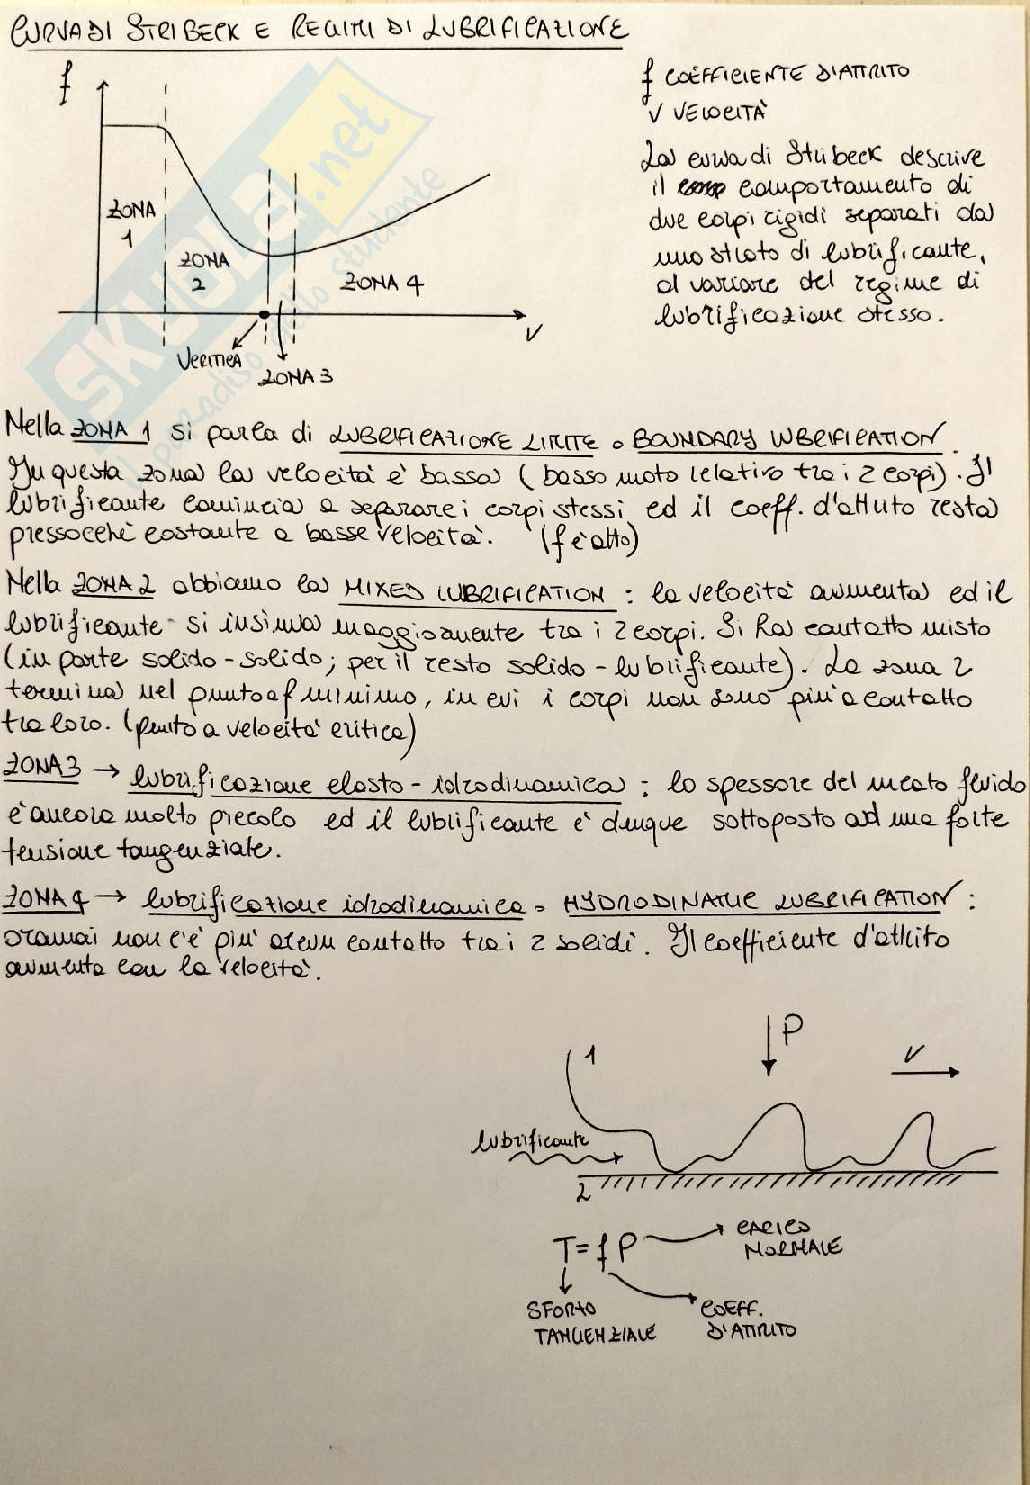 CURVA DI STRIBECK E REGIMI DI LUBRIFICAZIONE
f
f COEFFICIENTE D'ATTRITO
V VELOCITÀ
La curva di Stribeck descrive
il comportamento di
due corpi rigidi separati da
uno strato di lubrificante,
al variare del regime di
lubrificazione stesso.
ZONA
1
ZONA
2
ZONA 4
V
VCRITICA
ZONA 3
SKUOLA.net
il paradiso dello studente
Nella ZONA 1 si parla di LUBRIFICAZIONE LIMITE o BOUNDARY LUBRIFICATION.
In questa zona la velocità è bassa (basso moto relativo tra i 2 corpi). Il
lubrificante comincia a separare i corpi stessi ed il coeff. d'attrito resta
pressocché costante a basse velocità. (f è alto)
Nella ZONA 2 abbiamo la MIXED LUBRIFICATION: la velocità aumenta ed il
lubrificante si insinua maggiormente tra i 2 corpi. Si ha contatto misto
(in parte solido-solido; per il resto solido-lubrificante). La zona 2
termina nel punto a f minimo, in cui i corpi non sono più a contatto
tra loro. (punto a velocità critica)
ZONA 3 → lubrificazione elasto-idrodinamica: lo spessore del meato fluido
è ancora molto piccolo ed il lubrificante è dunque sottoposto ad una forte
tensione tangenziale.
ZONA 4 → lubrificazione idrodinamica o HYDRODINAMIC LUBRIFICATION:
oramai non c'è più alcun contatto tra i 2 solidi. Il coefficiente d'attrito
aumenta con la velocità.
P
1
V
lubrificante
2
T = f P
CARICO
NORMALE
SFORZO
TANGENZIALE
COEFF.
D'ATTRITO